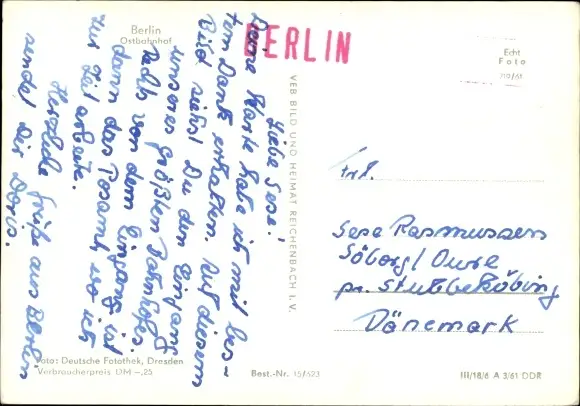 Berlin
Ostbahnhof
BERLIN
Echt
Foto
Liebe Sese!
Deine Karte habe ich mit bes-
tem Dank erhalten. Auf diesem
Bild siehst Du den Eingang
unseres größten Bahnhofes.
Rechts von dem Eingang ist
dann das Posamt wo ich
zur Zeit arbeite.
Herzliche Grüße aus Berlin
sendet Dir Doris.
VEB BILD UND HEIMAT REICHENBACH I. V.
Frl.
Sese Rasmussen
Söborg/ Oure
pr. Stubbeköbing
Dänemark
Foto: Deutsche Fotothek, Dresden
Verbraucherpreis DM -,25
Best.-Nr. 15/623
III/18/6 A 3/61 DDR